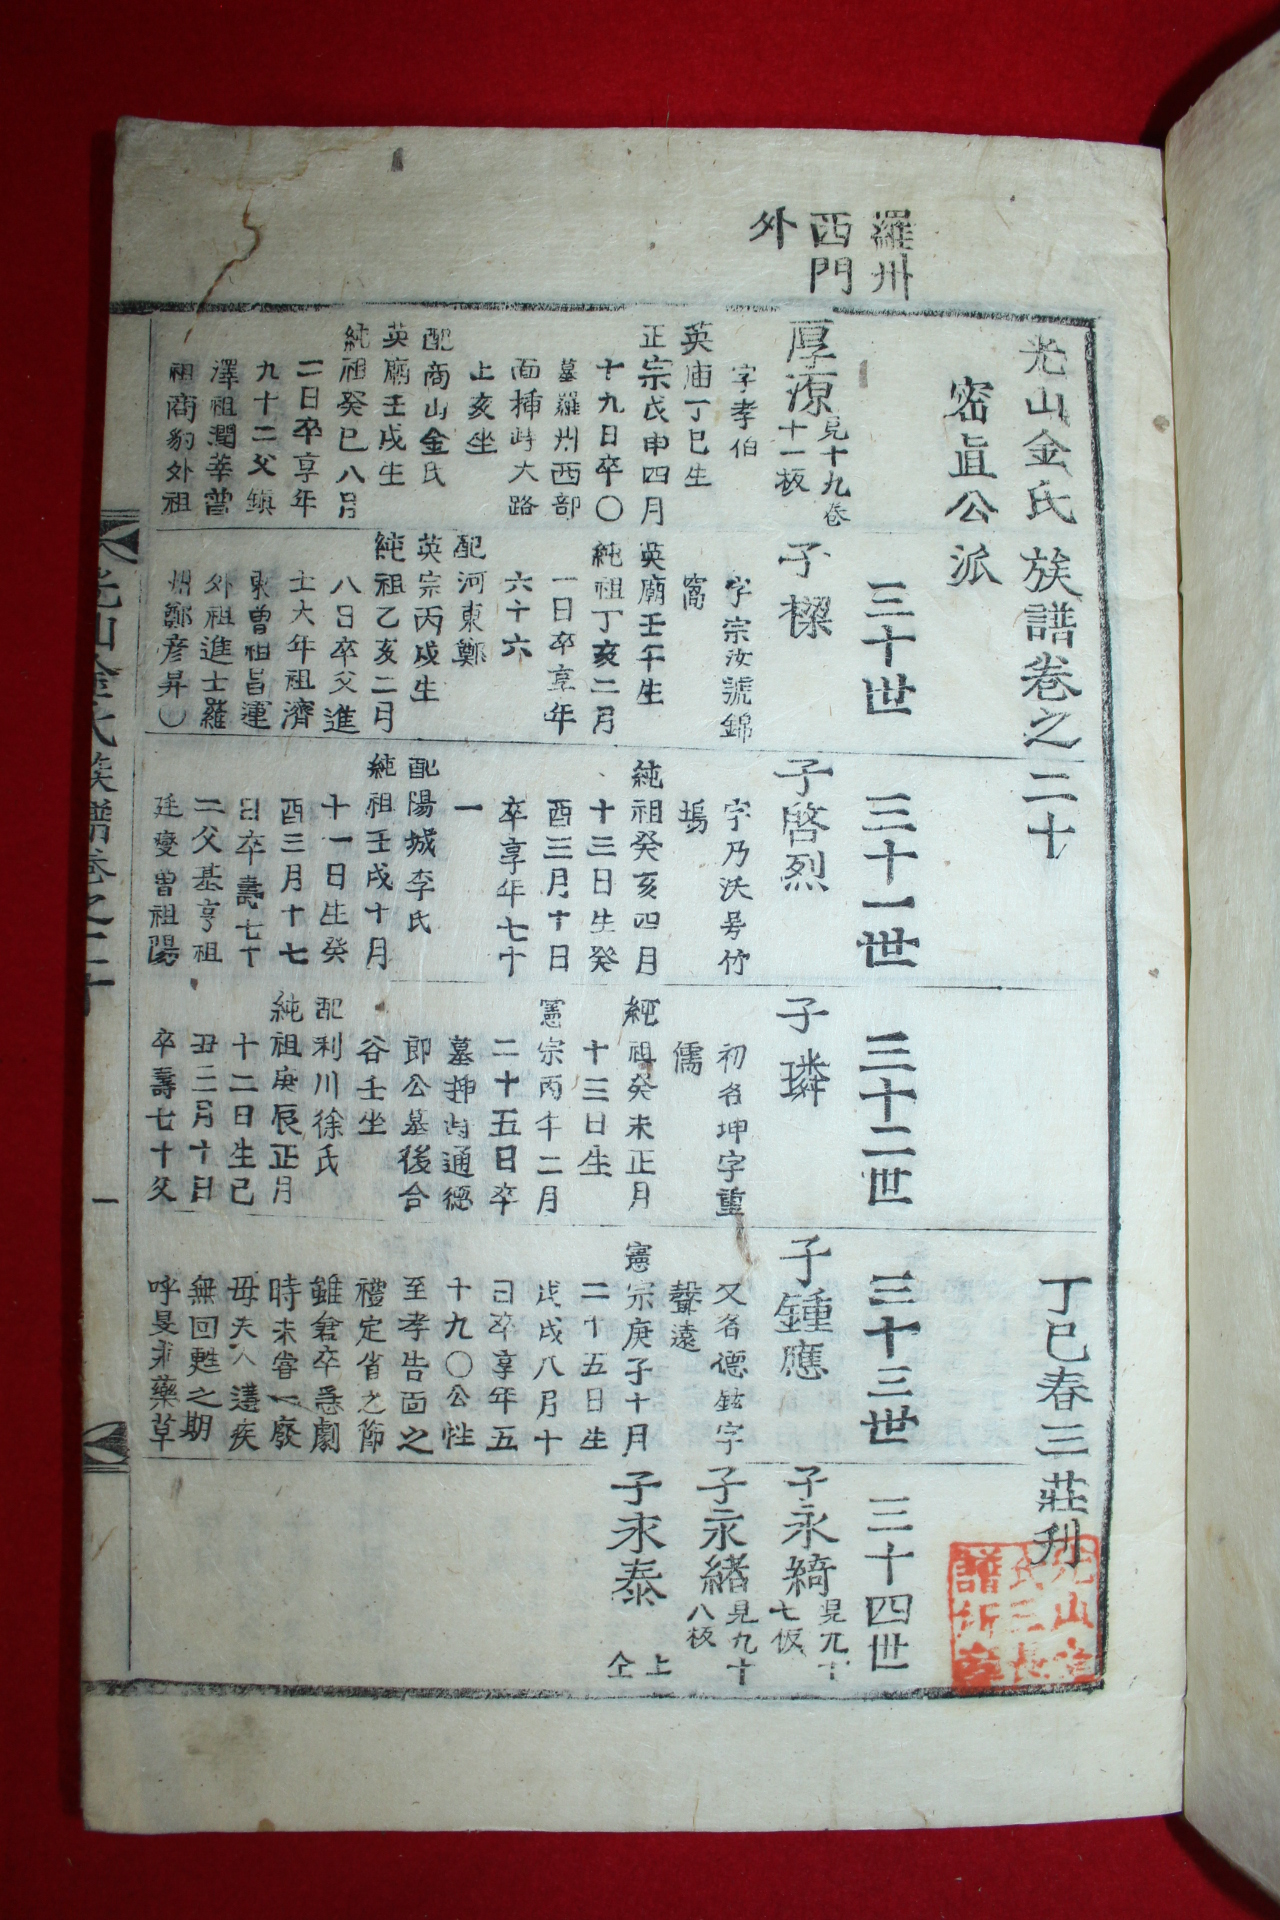 羅州
西門
外
光山金氏族譜卷之二十
丁巳春三莊刋
密直公派
三十世
三十一世
三十二世
三十三世
三十四世
厚源
見十九卷
十一板
字孝伯
英庙丁巳生
正宗戊申四月
十九日卒〇
墓羅州西部
面揷峙大路
上亥坐
配商山金氏
英廟壬戌生
純祖癸巳八月
二日卒享年
九十二父鎭
澤祖潤華曾
祖商豹外祖
子樑
字宗汝號錦
窩
英廟壬午生
純祖丁亥二月
一日卒享年
六十六
配河東鄭
英宗丙戌生
純祖乙亥二月
八日卒父進
士大年祖濟
東曾祖昌運
外祖進士羅
州鄭彦昇〇
子啓烈
字乃沃号竹
塢
純祖癸亥四月
十三日生癸
酉三月十日
卒享年七十
一
配陽城李氏
純祖壬戌十月
十一日生癸
酉三月十七
日卒壽七十
二父基亨祖
廷燮曾祖陽
子璘
初名坤字重
儒
純祖癸未正月
十三日生
憲宗丙午二月
二十五日卒
墓揷峙通德
郎公墓後合
谷壬坐
配利川徐氏
純祖庚辰正月
十二日生己
丑二月十日
卒壽七十父
子鍾應
又名德鉉字
聲遠
憲宗庚子十月
二十五日生
戊戌八月十
日卒享年五
十九〇公性
至孝告面之
禮定省之節
雖倉卒急劇
時未嘗一廢
母夫人遘疾
無回甦之期
呼旻求藥草
子永綺
見九十
七板
子永緖
見九十
八板
子永泰
上
仝
光山金氏族譜卷之二十
一